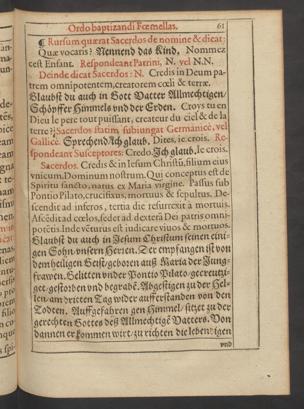 Ordo baptizandi Fœmellas. 61
¶ Rursum quærat Sacerdos de nomine & dicat:
Quæ vocaris? Nennend das Kind, Nommez
cest Enfant. Respondeant Patrini, N. vel N.N.
Deinde dicat Sacerdos: N. Credis in Deum pa-
trem omnipotentem, creatorem cœli & terræ.
Glaubst du auch in Gott Vatter Allmechtigen/
Schöpffer Himmels vnd der Erden. Croys tu en
Dieu le pere tout puissant, createur du ciel & de la
terre? Sacerdos statim subiungat Germanicè, vel
Gallicè. Sprechend Ich glaub. Dites, ie crois. Re-
spondeant Susceptores: Credo. Ich glaub. Ie crois.
Sacerdos. Credis & in Iesum Christũ, filium eius
vnicum, Dominum nostrum. Qui conceptus est de
Spiritu sancto, natus ex Maria virgine. Passus sub
Pontio Pilato, crucifixus, mortuus & sepultus. De-
scendit ad inferos, tertia die resurrexit à mortuis.
Ascẽdit ad cœlos, sedet ad dexterã Dei patris omni-
potẽtis. Inde vẽturus est iudicare viuos & mortuos.
Glaubst du auch in Jesum Christum seinen eini-
gen Sohn vnsern Herren. Der empfangen ist von
dem heiligen Geist/ geboren auß Maria der Jung-
frawen. Gelitten vnder Pontio Pilato/ gecreutzi-
get/ gestorben vnd begrabẽ. Abgestigen zu der Hel-
len/ am dritten Tag wider aufferstanden von den
Todten. Auffgefahren gen Himmel/ sitzet zu der
gerechten Gottes deß Allmechtigẽ Vatters. Von
dannen er kommen wirt/ zu richten die lebendigen
vnd